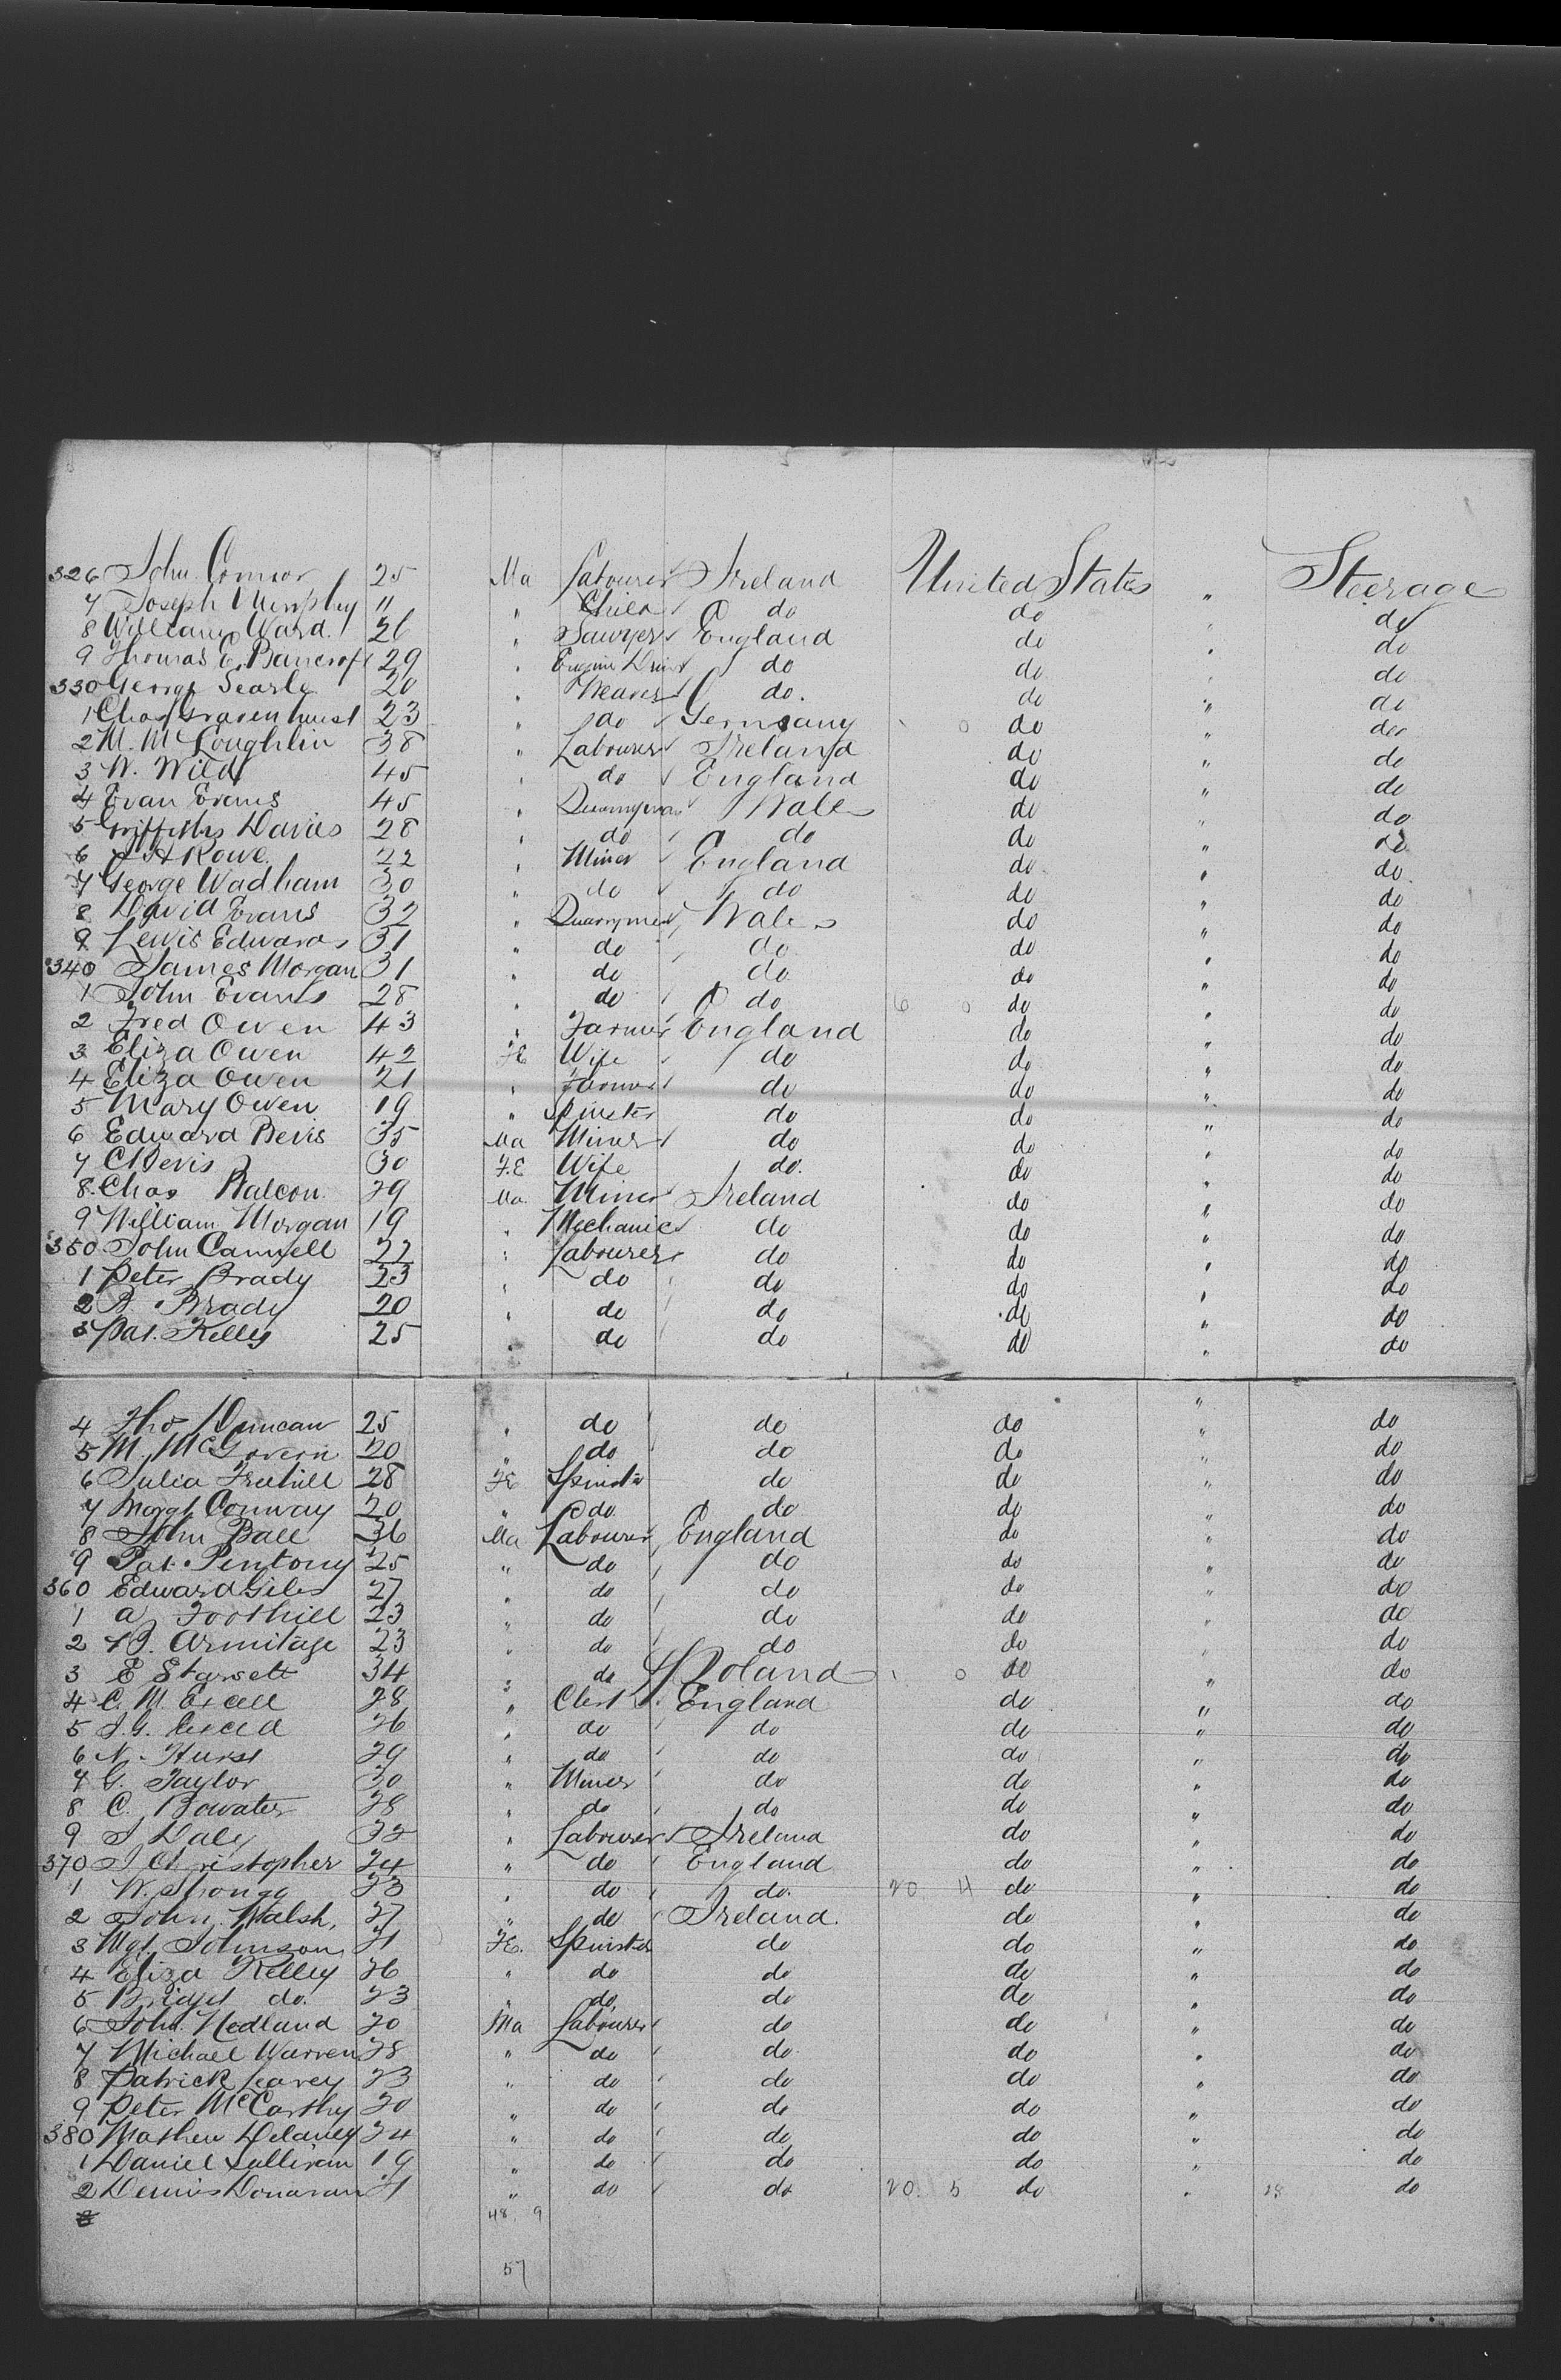 326 John Connor 25 Ma Labourer Ireland United States " Steerage
7 Joseph Murphy 11 " Child do do " do
8 William Ward. 26 " Sawyer England do " do
9 Thomas E. Bancroft 29 " Engine Driver do do " do
330 George Searle 20 " Weaver do. do " do
1 Chas Gravenhurst 23 " do Germany 0 do " do
2 M. McLoughlin 38 " Labourer Ireland do " do
3 W. Wild 45 " do England do " do
4 Evan Evans 45 " Quarryman Wales do " do
5 Griffiths Davies 28 " do do do " do
6 Rowe. 22 " Miner England do " do.
7 George Wadham 30 " do do do " do
8 David Evans 32 " Quarrymen Wales do " do
9 Lewis Edwards 31 " do do do " do
340 James Morgan 31 " do do do " do
1 John Evans 28 " do do 6 0 do " do
2 Fred Owen 43 " Farmer England do " do
3 Eliza Owen 42 FE Wife do do " do
4 Eliza Owen 21 " Farmer do do " do
5 Mary Owen 19 " Spinster do do " do
6 Edward Bevis 35 Ma Miner do do " do
7 C Bevis 30 FE Wife do. do " do
8. Chas Balcon. 29 Ma. Miner Ireland do " do
9 William Morgan 19 " Mechanic do do " do
350 John Cannell 22 " Labourer do do " do
1 Peter Brady 23 " do do do " do
2 B. Brady 20 " do do do " do
3 Pat. Kelly 25 " do do do " do
4 Tho Duncan 25 " do do do " do
5 M. McGovern 20 " do do do " do
6 Julia Freehill 28 FE Spinster do do " do
7 Margt Conway 20 " do. do do " do
8 John Ball 36 Ma Labourer England do " do
9 Pat. Pentony 25 " do do do " do
360 Edward Giles 27 " do do do " do
1 a Toothill 23 " do do do " do
2 Armitage 23 " do do do " do
3 E Starsett 34 " do Poland 0 do " do
4 C. M. Excell 28 " Clerk England do " do
5 J.G. Excell 26 " do do do " do
6 N. Hurst 29 " do do do " do
7 G. Taylor 30 " Miner do do " do
8 C. Bowater 28 " do do do " do
9 J Daly 22 " Labourer Ireland do " do
370 J Christopher 24 " do England do " do
1 W. Strong 23 " do do. 20 4 do " do
2 John Walsh, 27 " do Ireland. do " do
3 Mgt. Johnson 21 FE. Spinster do do " do
4 Eliza Kelley 26 " do do do " do
5 Bridget do. 23 " do do do " do
6 John Hedland 20 Ma Labourer do do " do
7 Michael Warren 28 " do do do " do
8 Patrick Learey 23 " do do do " do
9 Peter McCarthy 20 " do do do " do
380 Mathew Delaney 24 " do do do " do
1 Daniel Sullivan 19 " do do do " do
2 Dennis Donavan 21 " do do 20. 5 do " 28 do
3 48 9
57